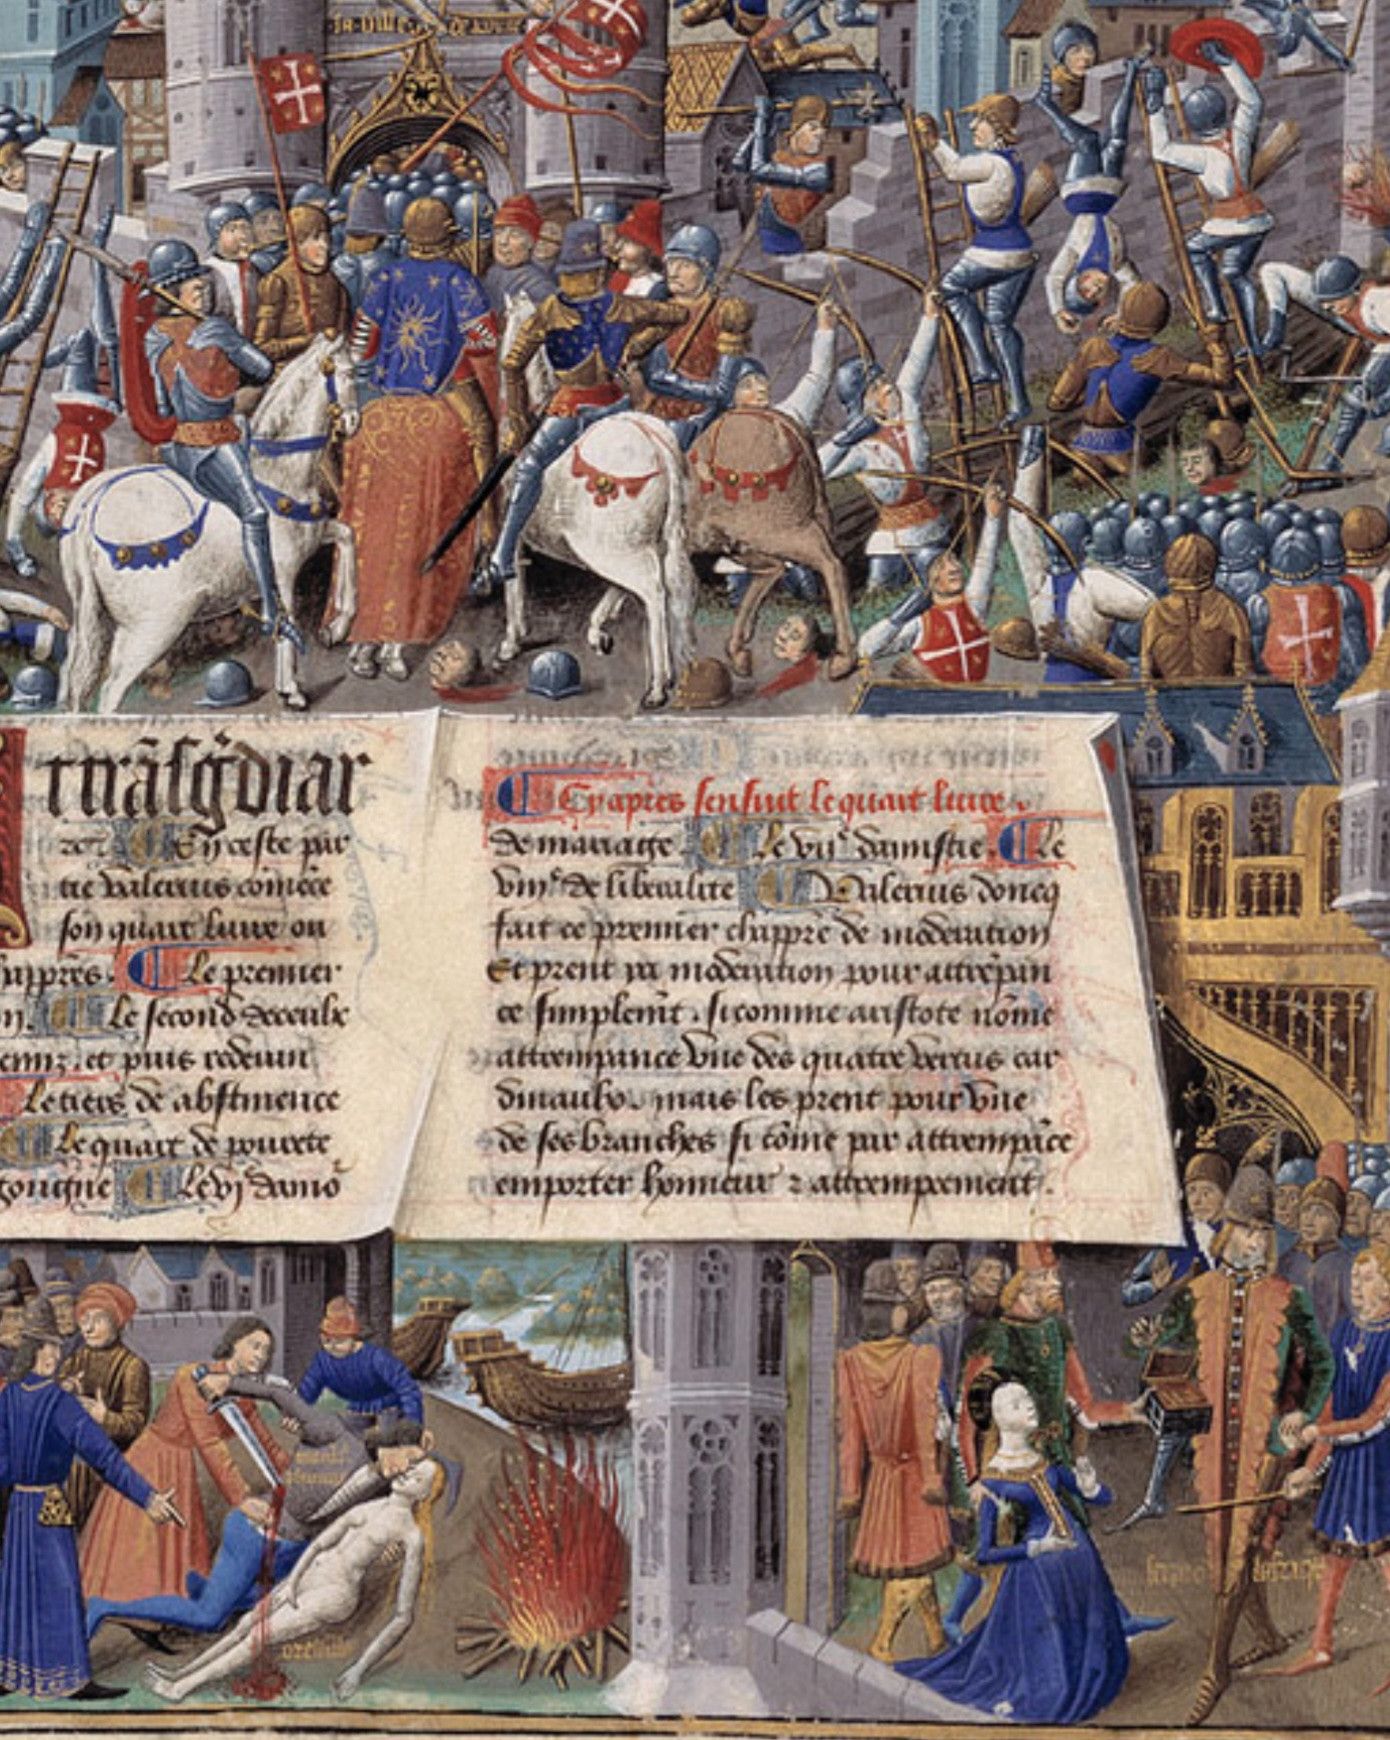 la ville
trãsgdiar
En ceste par
tie valerius cõmẽce
son quart livre ou
chappres. Le premier
Le second
et puis redevin
Le tiers de abstinence
Le quart de povrete
Le vj damo
Cy apres sensuit le quart livre.
de mariage. Le vije damistie. Le
viije de liberalite Valerius doncq
fait ce premier chappre de moderation
Et prent moderation pour attrempan
ce simplemt. si comme aristote nõme
attrempance vne des quatre vertus car
dinaulx. mais les prent pour vne
de ses branches si cõme par attrempãce
emporter honneur attrempement.